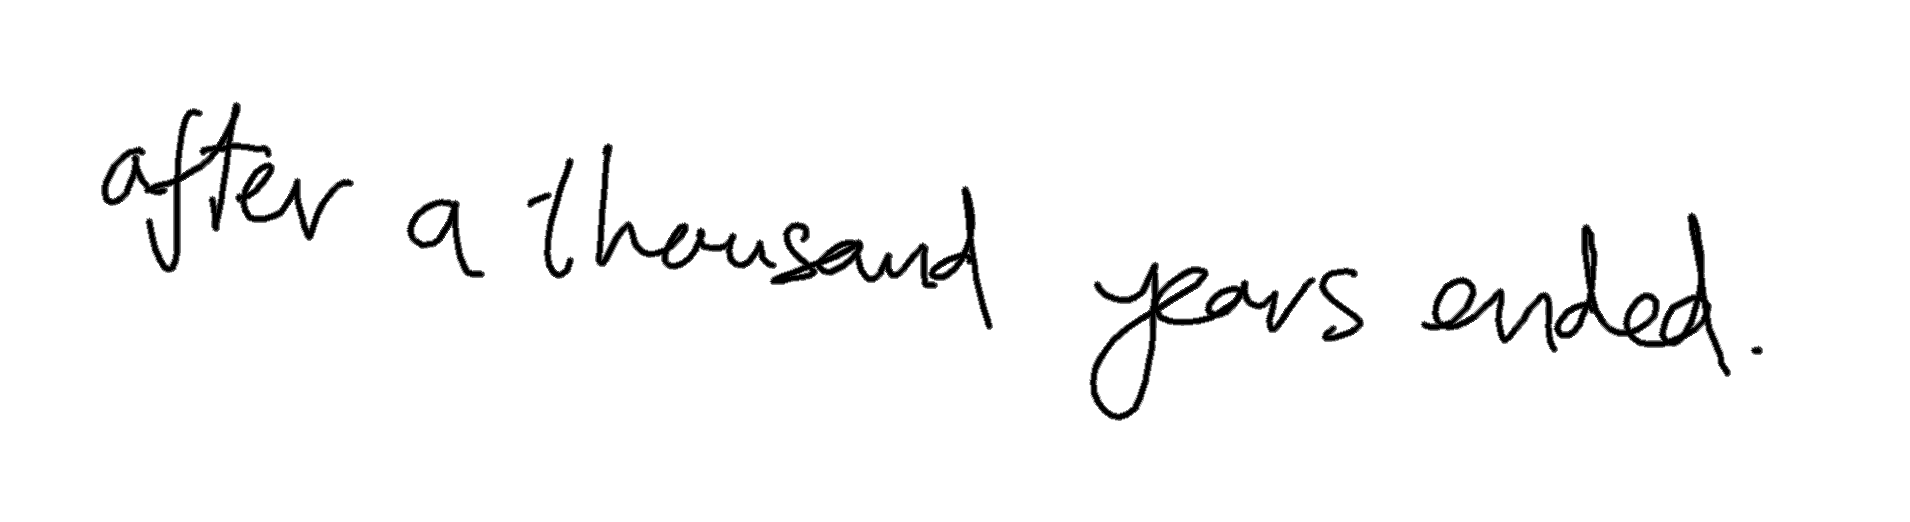 after a thousand years ended.